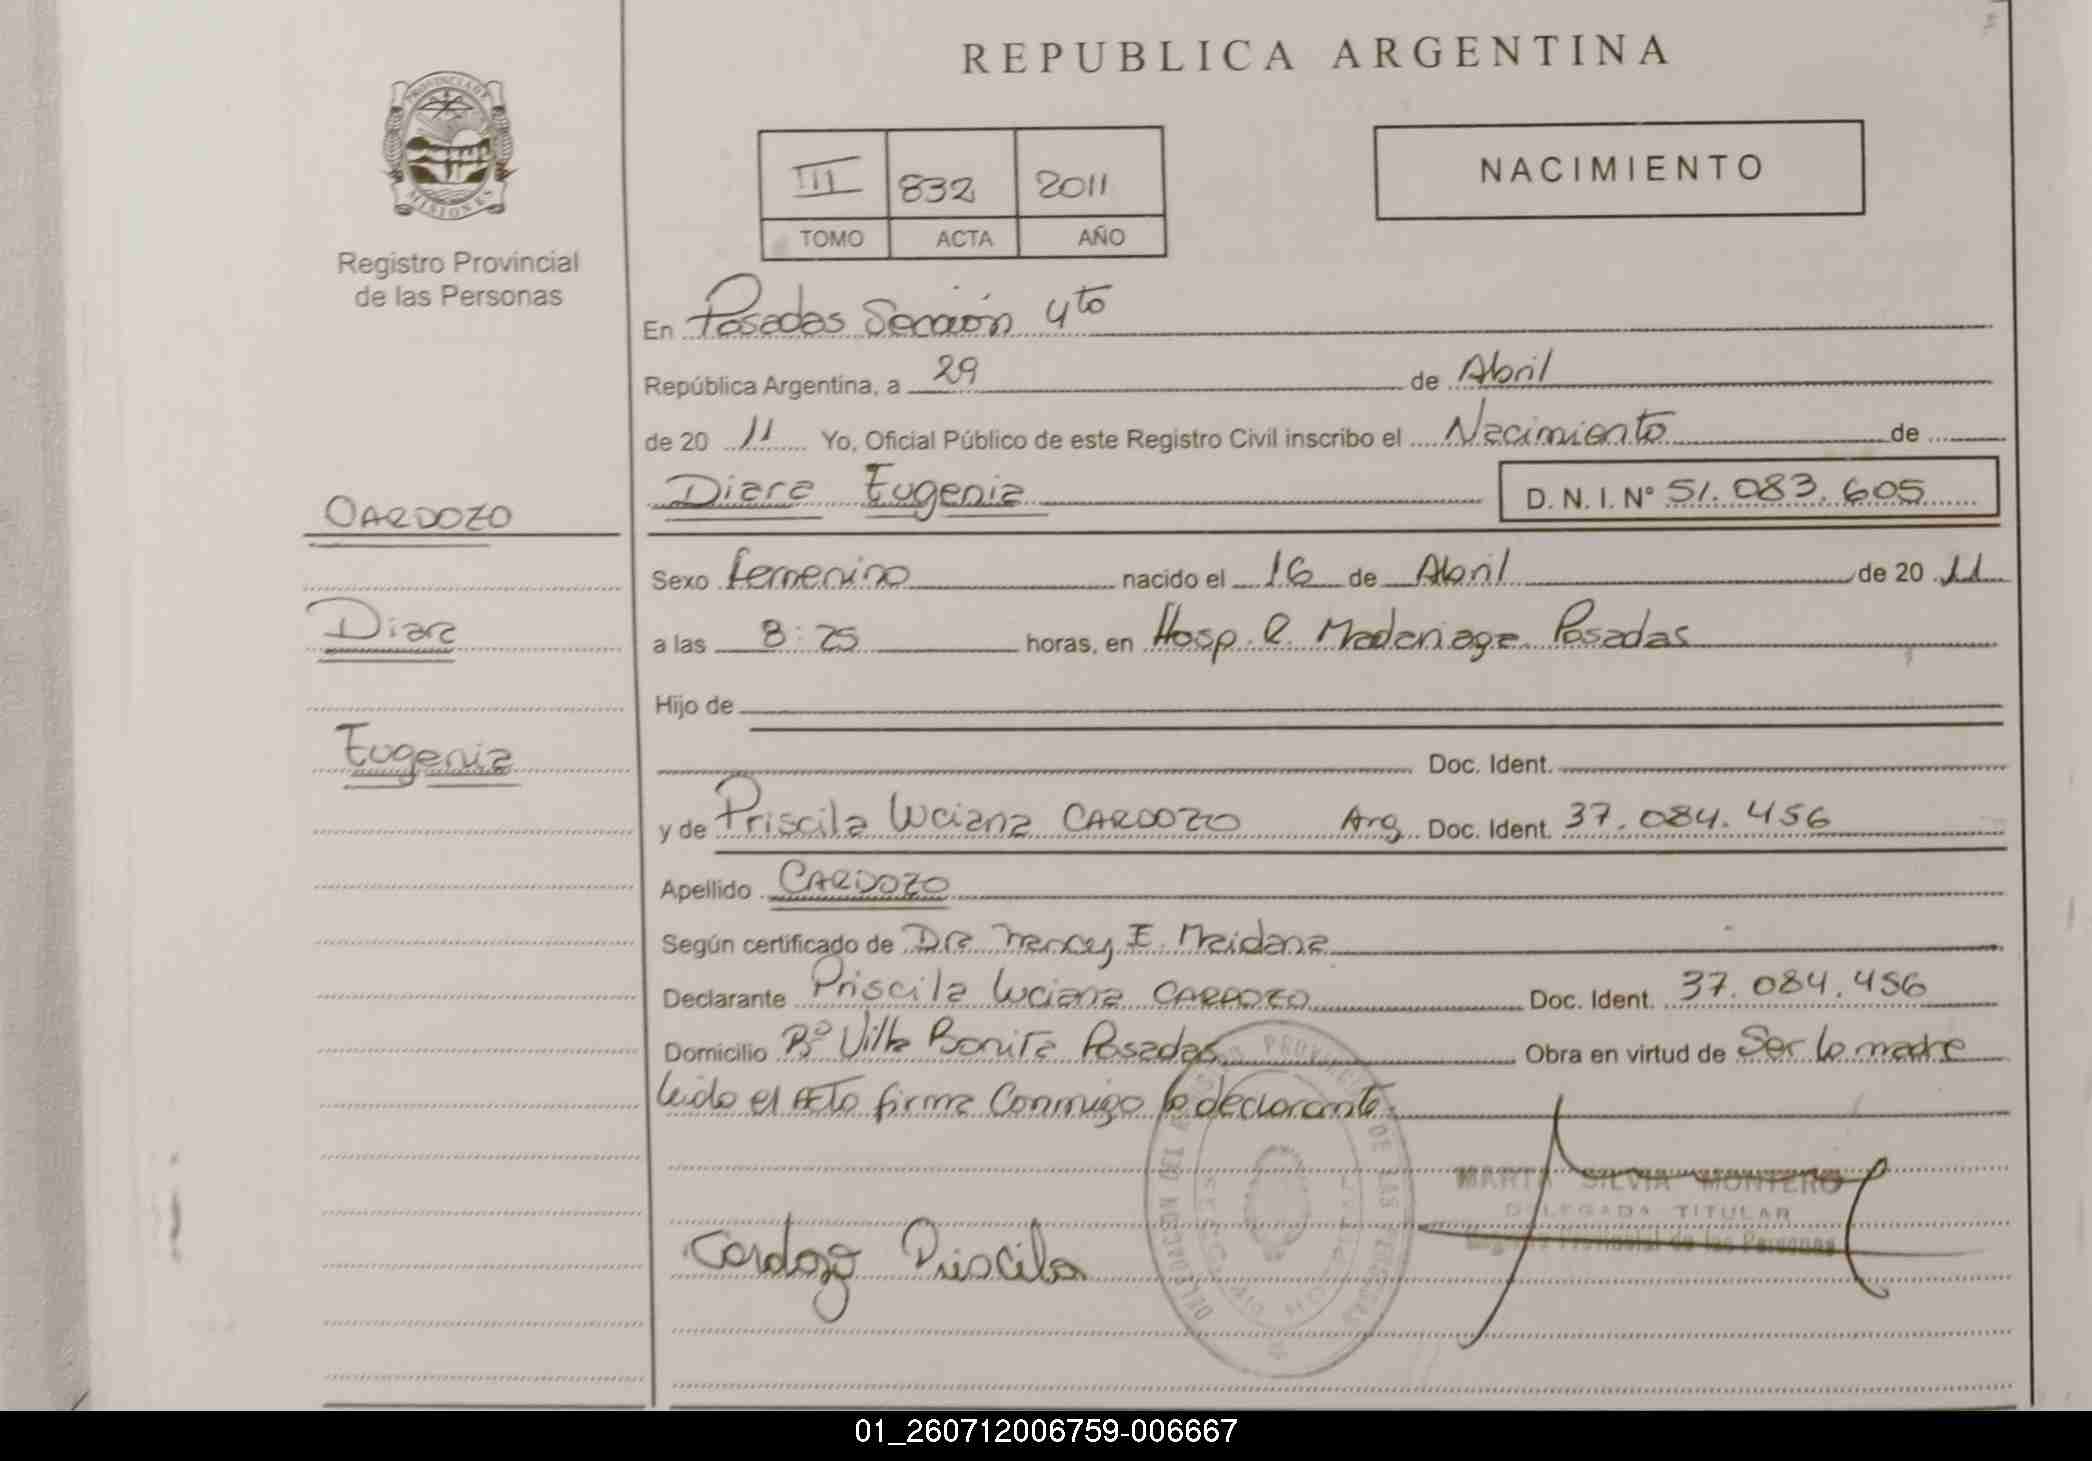 REPUBLICA ARGENTINA
PROVINCIA DE
MISIONES
Registro Provincial
de las Personas
III 832 2011
TOMO ACTA AÑO
NACIMIENTO
En Posadas Sección 4to
República Argentina, a 29 de Abril
de 20 11 Yo, Oficial Público de este Registro Civil inscribo el Nacimiento de
Diara Eugenia D. N. I. Nº 51.083.605
CARDOZO
Diara
Eugenia
Sexo femenino nacido el 16 de Abril de 20 11
a las 8:25 horas, en Hosp. R. Madariaga Posadas
Hijo de
Doc. Ident.
y de Priscila Luciana CARDOZO Arg. Doc. Ident. 37.084.456
Apellido CARDOZO
Según certificado de Dra Nancy E. Maidana
Declarante Priscila Luciana CARDOZO Doc. Ident. 37.084.456
Domicilio Bº Villa Bonita Posadas Obra en virtud de Ser la madre
leido el Acto firma Conmigo la declarante.
MARTA SILVIA MONTERO
DELEGADA TITULAR
Registro Provincial de las Personas
Cardozo Priscila
01_260712006759-006667